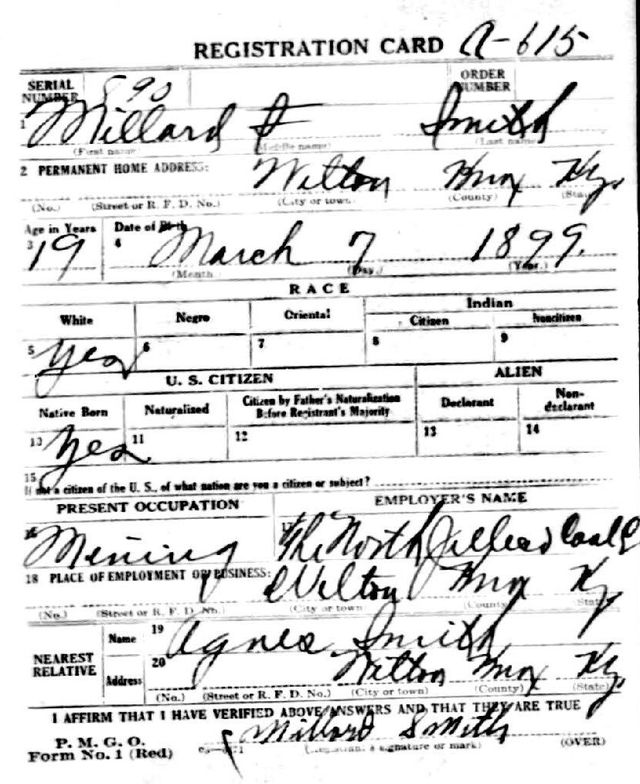 REGISTRATION CARD A-615
SERIAL NUMBER 890 ORDER NUMBER
1 Millard F Smith
(First name) (Middle name) (Last name)
2 PERMANENT HOME ADDRESS: Wilton Knox Ky.
(No.) (Street or R. F. D. No.) (City or town) (County) (State)
Age in Years Date of Birth
3 19 4 March 7 1899.
(Month) (Day.) (Year.)
RACE
White Negro Oriental Indian
Citizen Noncitizen
5 Yes 6 7 8 9
U. S. CITIZEN ALIEN
Native Born Naturalized Citizen by Father's Naturalization Before Registrant's Majority Declarant Non-declarant
10 Yes 11 12 13 14
15
If not a citizen of the U. S., of what nation are you a citizen or subject?
PRESENT OCCUPATION EMPLOYER'S NAME
16 Mening 17 The North Jellico Coal C
18 PLACE OF EMPLOYMENT OR BUSINESS: Wilton Knox Ky
(No.) (Street or R. F. D. No.) (City or town) (County) (State)
NEAREST RELATIVE Name 19 Agnes Smith
Address 20 Wilton Knox Ky.
(No.) (Street or R. F. D. No.) (City or town) (County) (State)
I AFFIRM THAT I HAVE VERIFIED ABOVE ANSWERS AND THAT THEY ARE TRUE
P. M. G. O.
Form No. 1 (Red) Millard Smith
(Registrant's signature or mark) (OVER)